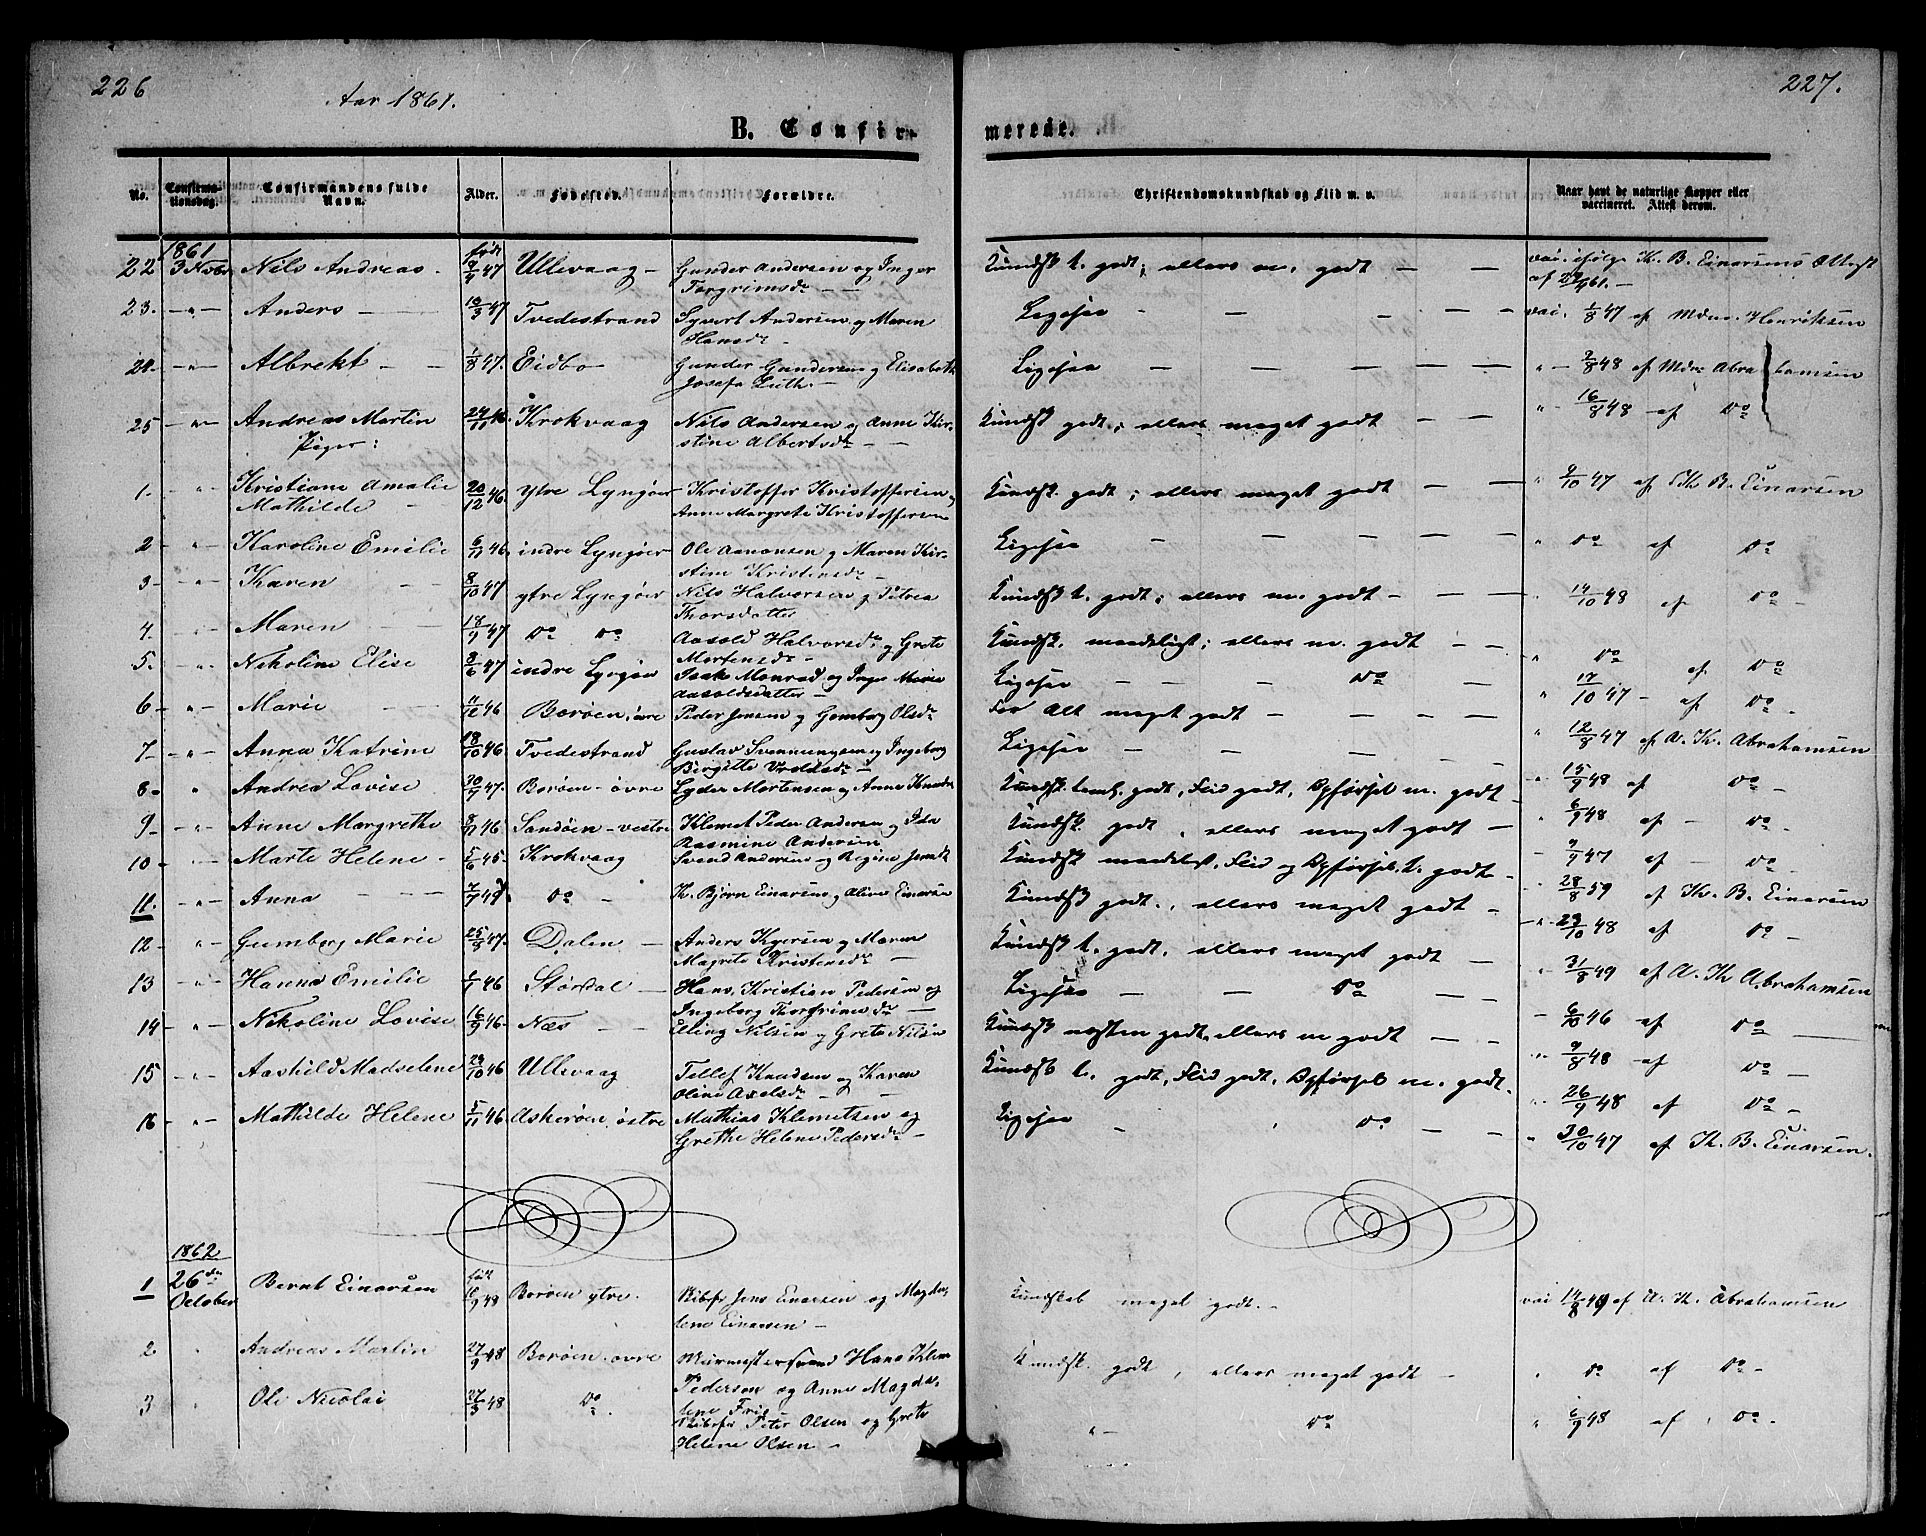 226
Aar 1861.
227.
B. Confir-
merede.
No.
Confirma-
tionsdag.
Confirmandens fulde
Navn.
Alder.
Fødested.
Forældre.
Christendomskundskab og Flid m. v.
Naar havt de naturlige Kopper eller
vaccineret. Attest derom.
1861 født
22 3 Nvbr Nils Andreas - 47 Ullevaag - Gunder Andersen og Inger Torgrimsdr - Kundsk t. godt; ellers m. godt - - vai. ifølge Th. B. Einarsens Attest af 61. -
23. - " - Anders - 10/3 47 Tvedestrand Syvert Andersen og Maren Hansdr - Ligesaa - - - vai. 1/8 47 af Mdm. Henriksen
24. - " - Albrekt - - 1/8 47. Eidbo - Gunder Gundersen og Elisabeth Josefa - Ligesaa - - - " - 2/8 48 af Mdm Abrahamsen
25 - " - Andreas Martin 24/11 46. Krokvaag Nils Andersen og Anne Kirstine Albertsdr - - Kundsk godt; ellers meget godt - - " - 16/8 48 - af Do
Piger:
1. - " - Kristiane Amalie Mathilde - 20/12 46 ytre Lyngøer - Kristoffer Kristoffersen og Anne Margrete Kristoffersen Kundsk. godt; ellers meget godt - - " 9/10 47 af Th. B. Einarsen
2 - " - Karoline Emilie 6/11 46. indre Lyngøer Ole Aanonsen og Maren Kirstine Kristensdr - Ligesaa - - - " Do af Do
3 - " - Karen - 8/10 47 ytre Lyngøer Nils Halvorsen og Petrea Thorsdatter Kundsk t. godt; ellers m. godt - - - " 14/10 48 af Do -
4. - " - Maren - 18/9 47 Do Do Aasold Halvorsdr og Grete Mortensdr - Kundsk. maadeligt; ellers m. godt - - " Do af Do
5. - " - Nikoline Elise 8/6 47 indre Lyngøer Isak Monrad og Inger Marie Aasoldsdatter - Ligesaa - - - Do - " 17/10 47 - af Do -
6 - " - Marie - /12 46 Borøen, øvre Peder Jensen og Gomborg Olsdr For Alt meget godt - - - -
7 - " - Anna Katrine 18/10 46. Tvedestrand Gustav Svennungsen og Ingeborg Birgitte - Ligesaa - - - " 12/8 47 af A. Th. Abrahamsen
8 - " Andrea Lovise 30/9 47. Borøen - øvre Lyder Mortensen og Anne Knudsdr Kundsk. godt, Flid godt, Opførsel m. godt - " 15/9 48 af Do -
9 - " - Anne Margrethe 8/11 46 Sandøen - vestre Klemet Peder Andersen og Ida Rasmine Andersen Kundsk. godt, ellers meget godt - " 6/9 48 af - Do -
10 - Marte Helene - 5/6 45. Krokvaag Svend Andersen og Regine Kundsk maadeligt, Flid og Opførsel t. godt - - 9/9 47 af - Do -
11. - " - Anna - - - Do - Th. Bjørn Einarsen og Aline Einarsen Kundsk godt., ellers meget godt - " 28/8 59 af Th. B. Einarsen
12 - " - Gumborg Marie 25/8 47. Dalen - Anders og Maren Magrete Kristensdr - Kundsk t. godt, ellers meget godt - - " 23/10 48 af Do -
13 - " - Hanna Emilie 1/1 46 Størdal - Hans Kristian Pedersen og Ingeborg - Ligesaa - - Do - - " 31/8 49 af A. Th Abrahamsen
14 - " - Nikoline Lovise 16/9 46. Næs - - Elling Nilsen og Grete Nilsen Kundsk næsten godt, ellers m godt - - - 6/10 46 af Do -
15 - " - Aashild Madselene 23/10 46 Ullevaag Tellef Knudsen og Karen Oline Axelsdr - - Kundsk t. godt, Flid godt, Opførsel m. godt. " 9/8 48 - af Do -
16 - " - Mathilde Helene 5/11 46 Askerøen, østre Mathias Klemetsen og Grethe Helene Pedersdr - Ligesaa - Do - - " 26/9 48 af Do -
" 30/10 47 af Th. B. Einarsen.
1862
født
1 26de October Bernt Einarsen 16/9 48 Borøen ytre. Skibsfr Jens Einarsen og Magdalene Einarsen - Kundskab meget godt. - vai 14/8 49 af A. Th. Abrahamsen
2 " Andreas Martin 27/9 48 Borøen øvre Murmestersvend Hans Klem Pedersen og Anne Magdalene Friis Kundsk. godt, ellers meget godt - " Do af Do -
3 " Ole Nicolai 27/3 48 Do Skibsfr Peter Olsen og Grete Helene Olsen - " - Do " 6/9 48 af Do -